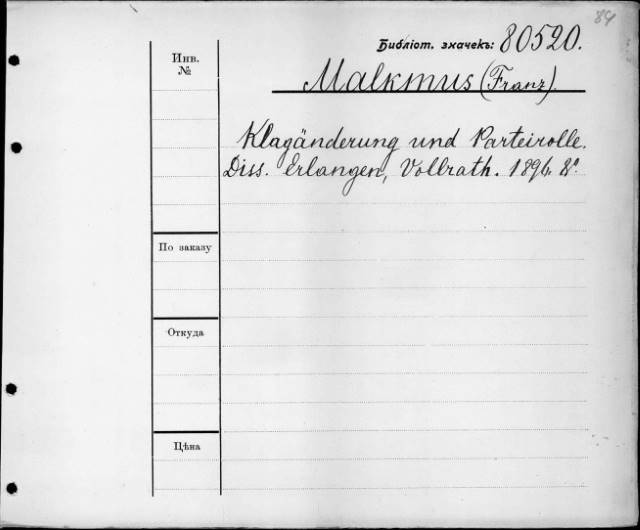 84
Библіот. значекъ: 80520.
Инв.
№
Malkmus (Franz).
Klagänderung und Parteirolle.
Diss. Erlangen, Vollrath. 1894. 8º.
По заказу
Откуда
Цѣна